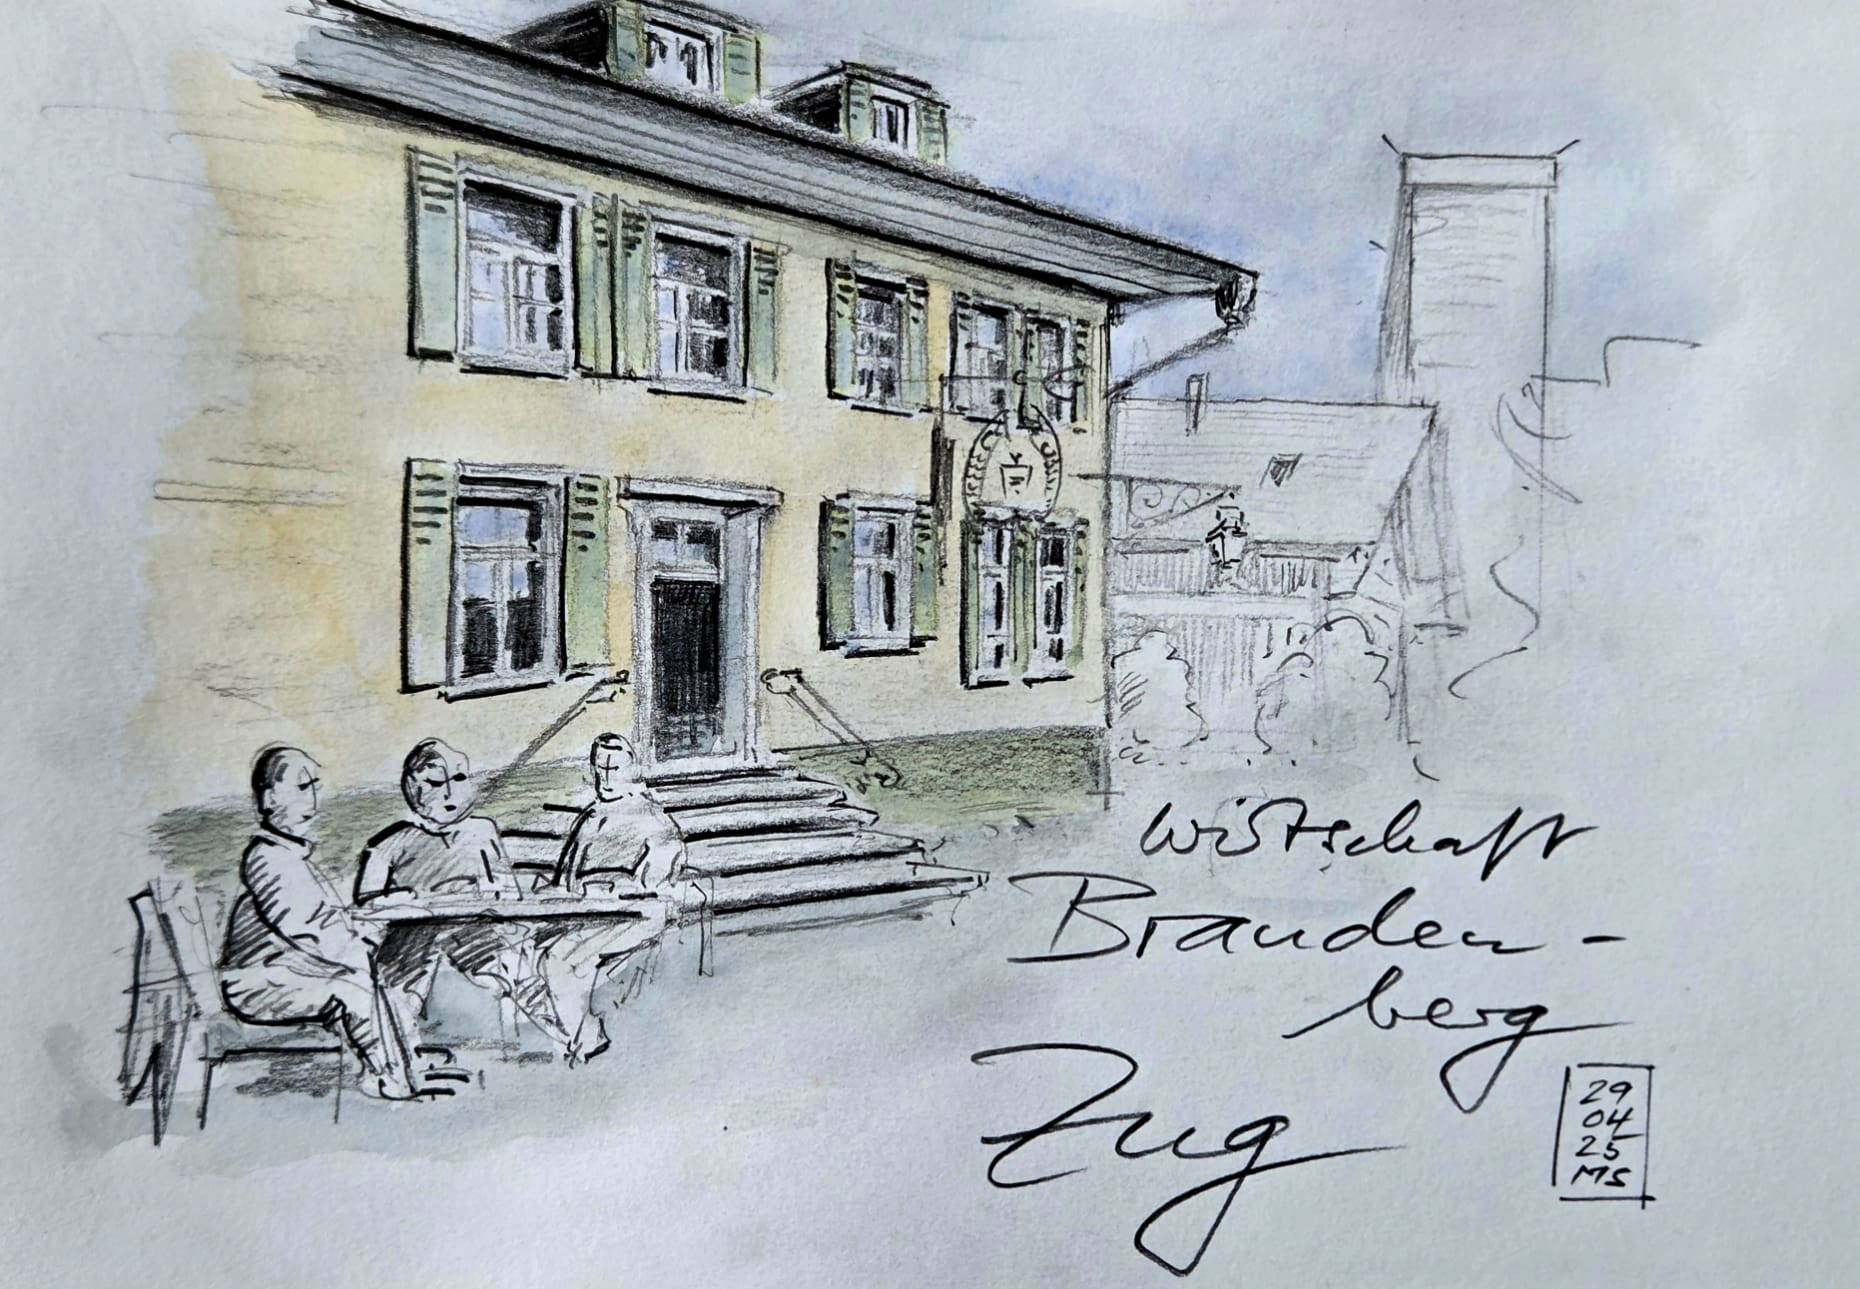 Wirtschaft
Branden-
berg
Zug
29
04
25
MS